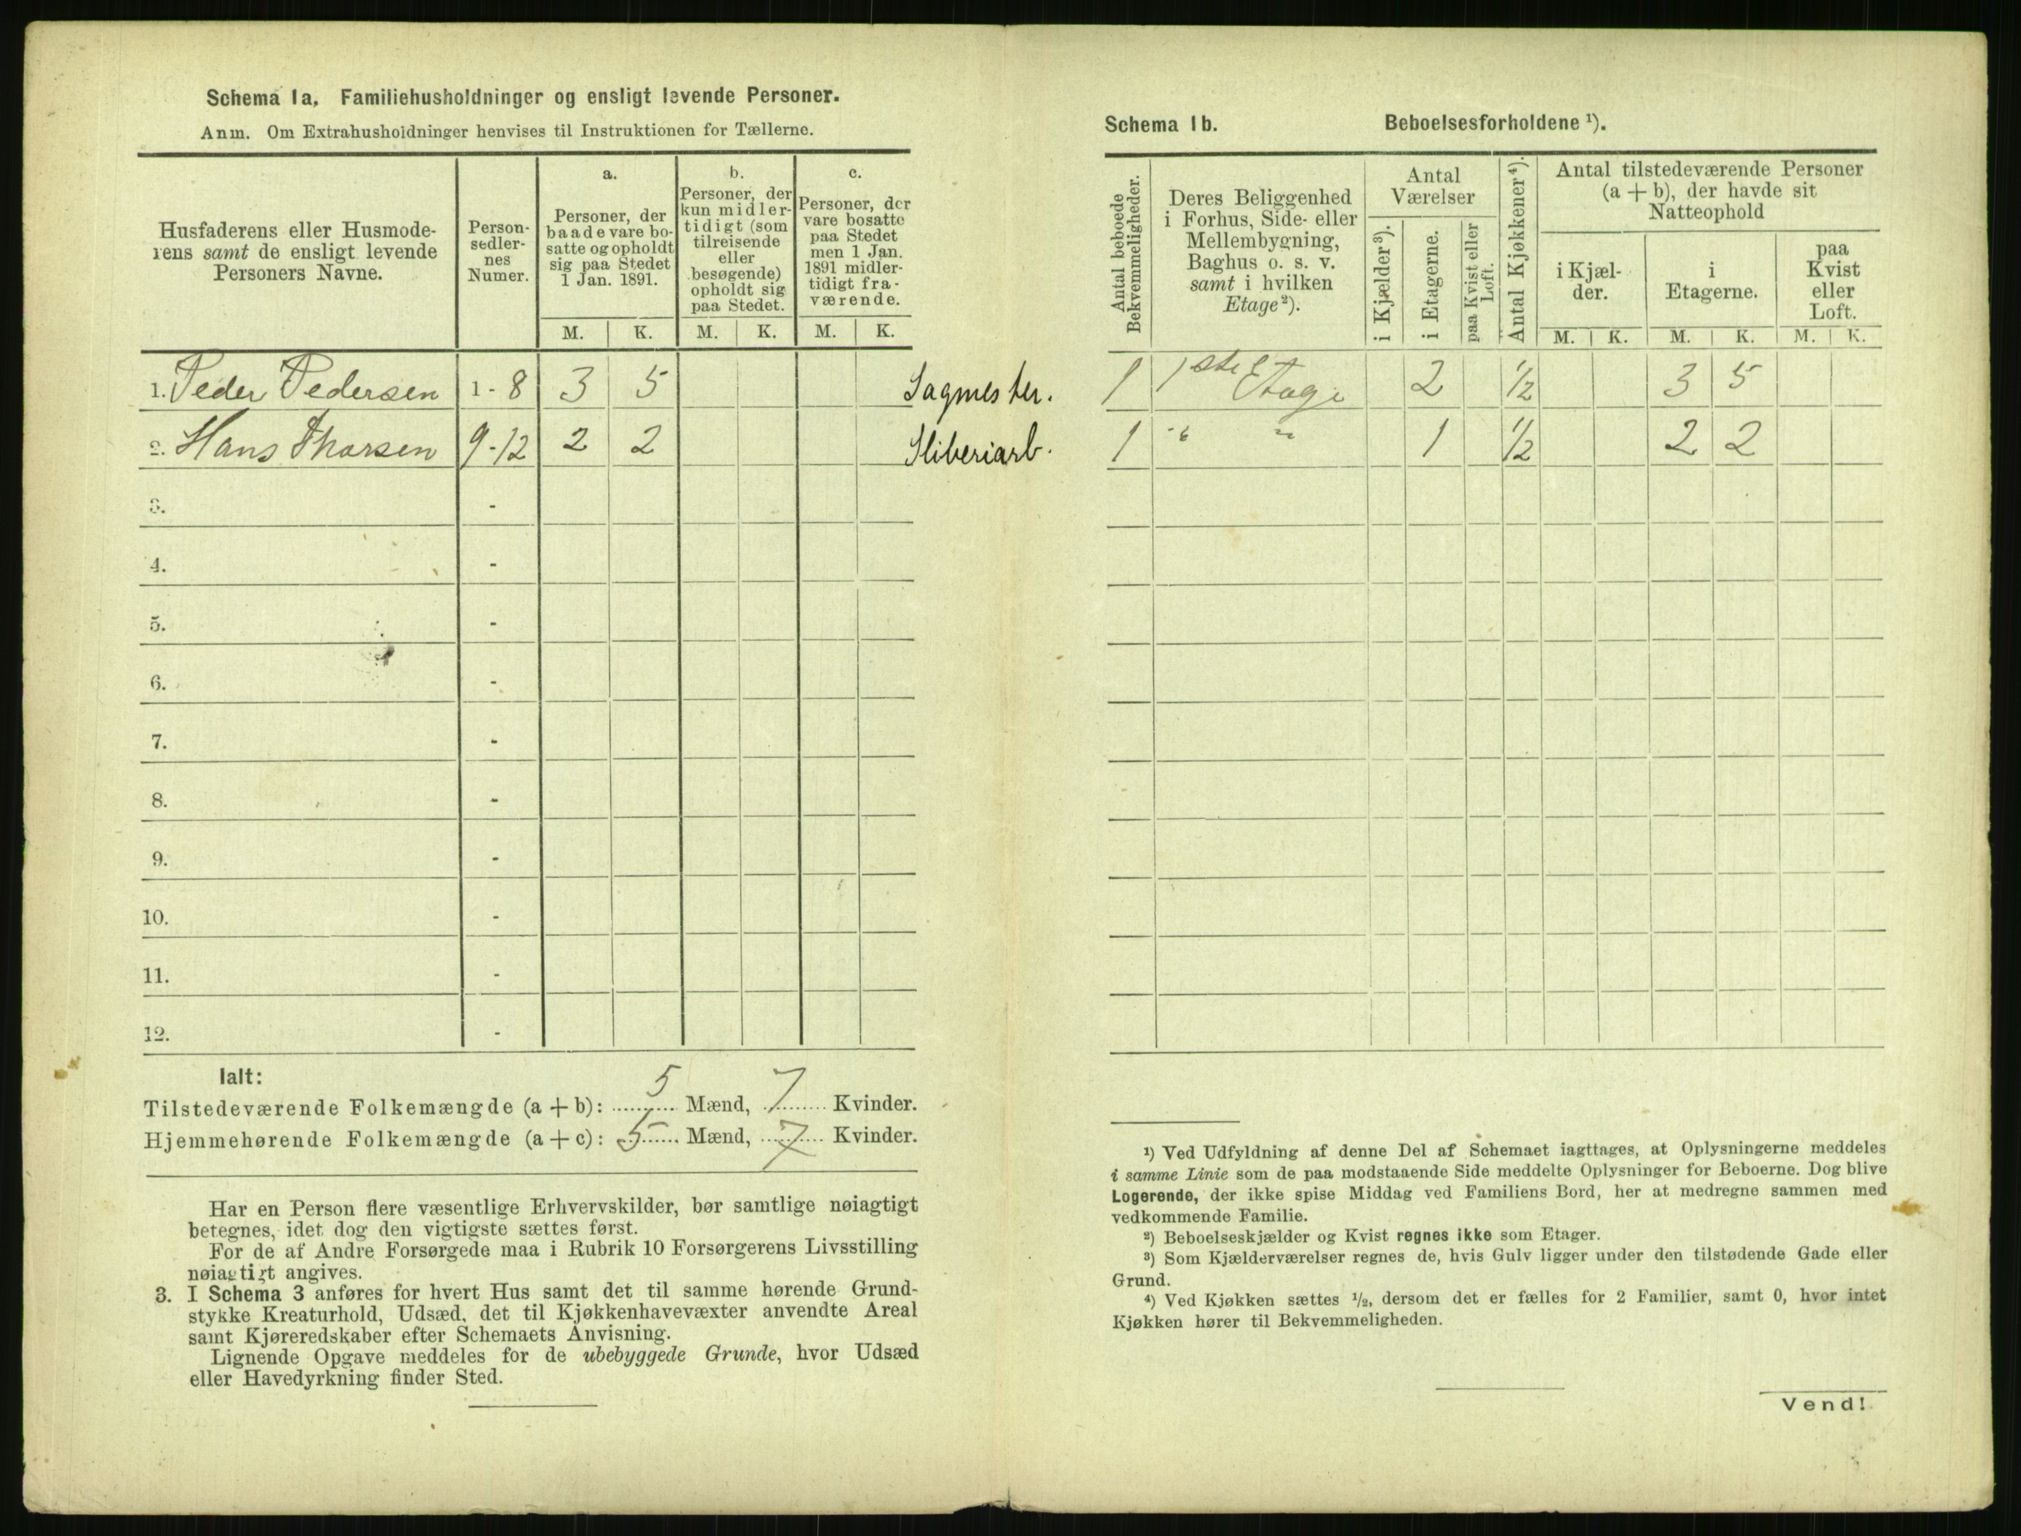 Schema 1a. Familiehusholdninger og ensligt levende Personer.
Anm. Om Extrahusholdninger henvises til Instruktionen for Tællerne.
Husfaderens eller Husmoderens samt de ensligt levende Personers Navne.
Person-sedler-nes Numer.
a. Personer, der baade vare bosatte og opholdt sig paa Stedet 1 Jan. 1891.
b. Personer, der kun midlertidigt (som tilreisende eller besøgende) opholdt sig paa Stedet.
c. Personer, der vare bosatte paa Stedet men 1 Jan. 1891 midlertidigt fraværende.
M. K. M. K. M. K.
1. Peder Pedersen 1 - 8 3 5 Sagmester.
2. Hans Thorsen 9 - 12 2 2 Sliberiarb.
3. -
4. -
5. -
6. -
7. -
8. -
9. -
10. -
11. -
12. -
Ialt:
Tilstedeværende Folkemængde (a + b): 5 Mænd, 7 Kvinder.
Hjemmehørende Folkemængde (a + c): 5 Mænd, 7 Kvinder.
Har en Person flere væsentlige Erhvervskilder, bør samtlige nøiagtigt
betegnes, idet dog den vigtigste sættes først.
For de af Andre Forsørgede maa i Rubrik 10 Forsørgerens Livsstilling
nøiagtigt angives.
3. I Schema 3 anføres for hvert Hus samt det til samme hørende Grund-
stykke Kreaturhold, Udsæd, det til Kjøkkenhavevæxter anvendte Areal
samt Kjøreredskaber efter Schemaets Anvisning.
Lignende Opgave meddeles for de ubebyggede Grunde, hvor Udsæd
eller Havedyrkning finder Sted.
Schema 1b. Beboelsesforholdene ¹).
Antal beboede Bekvemmeligheder.
Deres Beliggenhed i Forhus, Side- eller Mellembygning, Baghus o. s. v. samt i hvilken Etage²).
Antal Værelser
i Kjælder³).
i Etagerne.
paa Kvist eller Loft.
Antal Kjøkkener⁴).
Antal tilstedeværende Personer (a + b), der havde sit Natteophold
i Kjælder.
i Etagerne.
paa Kvist eller Loft.
M. K. M. K. M. K.
1 1ste Etage 2 ½ 3 5
1 " " 1 ½ 2 2
¹) Ved Udfyldning af denne Del af Schemaet iagttages, at Oplysningerne meddeles
i samme Linie som de paa modstaaende Side meddelte Oplysninger for Beboerne. Dog blive
Logerende, der ikke spise Middag ved Familiens Bord, her at medregne sammen med
vedkommende Familie.
²) Beboelseskjælder og Kvist regnes ikke som Etager.
³) Som Kjælderværelser regnes de, hvis Gulv ligger under den tilstødende Gade eller
Grund.
⁴) Ved Kjøkken sættes ½, dersom det er fælles for 2 Familier, samt 0, hvor intet
Kjøkken hører til Bekvemmeligheden.
Vend!